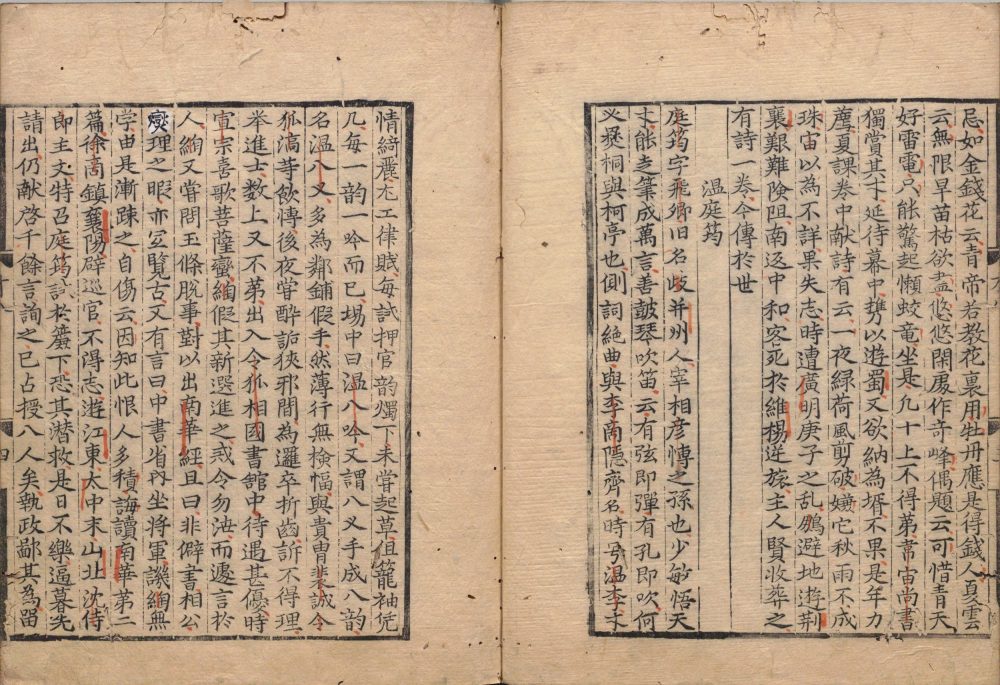 忌如金錢花云青帝若教花裏用牡丹應是得錢人夏雲
云無限旱苗枯欲盡悠悠閑處作奇峰偶題云可惜青天
好雷電只能驚起懶蛟竜坐是凢十上不得第韋宙尚書
獨賞其才延待幕中携以遊蜀又欲納為壻不果是年力
薦夏課卷中献詩有云一夜緑荷風剪破嫌它秋雨不成
珠宙以為不詳果失志時遭廣明庚子之乱鵬避地遊荆
襄艱難險阻南返中和客死於維楊逆旅主人賢收葬之
有詩一卷今傳於世
温庭筠
庭筠字飛卿旧名歧并州人宰相彦愽之孫也少敏悟天
才能走筆成萬言善皷琴吹笛云有弦即彈有孔即吹何
必爨桐與柯亭也側詞絶曲與李商隠齊名時号温李才
情綺麗尤工律賦每試押官韵燭下未嘗起草但籠袖凭
几每一韵一吟而已場中曰温八吟又謂八叉手成八韵
名温八叉多為鄰鋪假手然薄行無檢幅與貴冑裴誠令
狐滈等飲愽後夜嘗醉詬狹邪間為邏卒折齒訴不得理
举進士数上又不第出入令狐相國書舘中待遇甚優時
宣宗喜歌菩薩蠻綯假其新選進之戒令勿泄而遽言於
人綯又嘗問玉條脫事對以出南華經且曰非僻書相公
爕理之暇亦宜覽古又有言曰中書省内坐将軍譏綯無
学由是漸踈之自傷云因知此恨人多積誨讀南華第二
篇徐商鎮襄陽辟巡官不得志遊江東太中末山北沈侍
郎主文特召庭筠試於簾下恐其潜救是日不樂逼暮先
請出仍献啓千餘言詢之已占授八人矣執政鄙其為畄